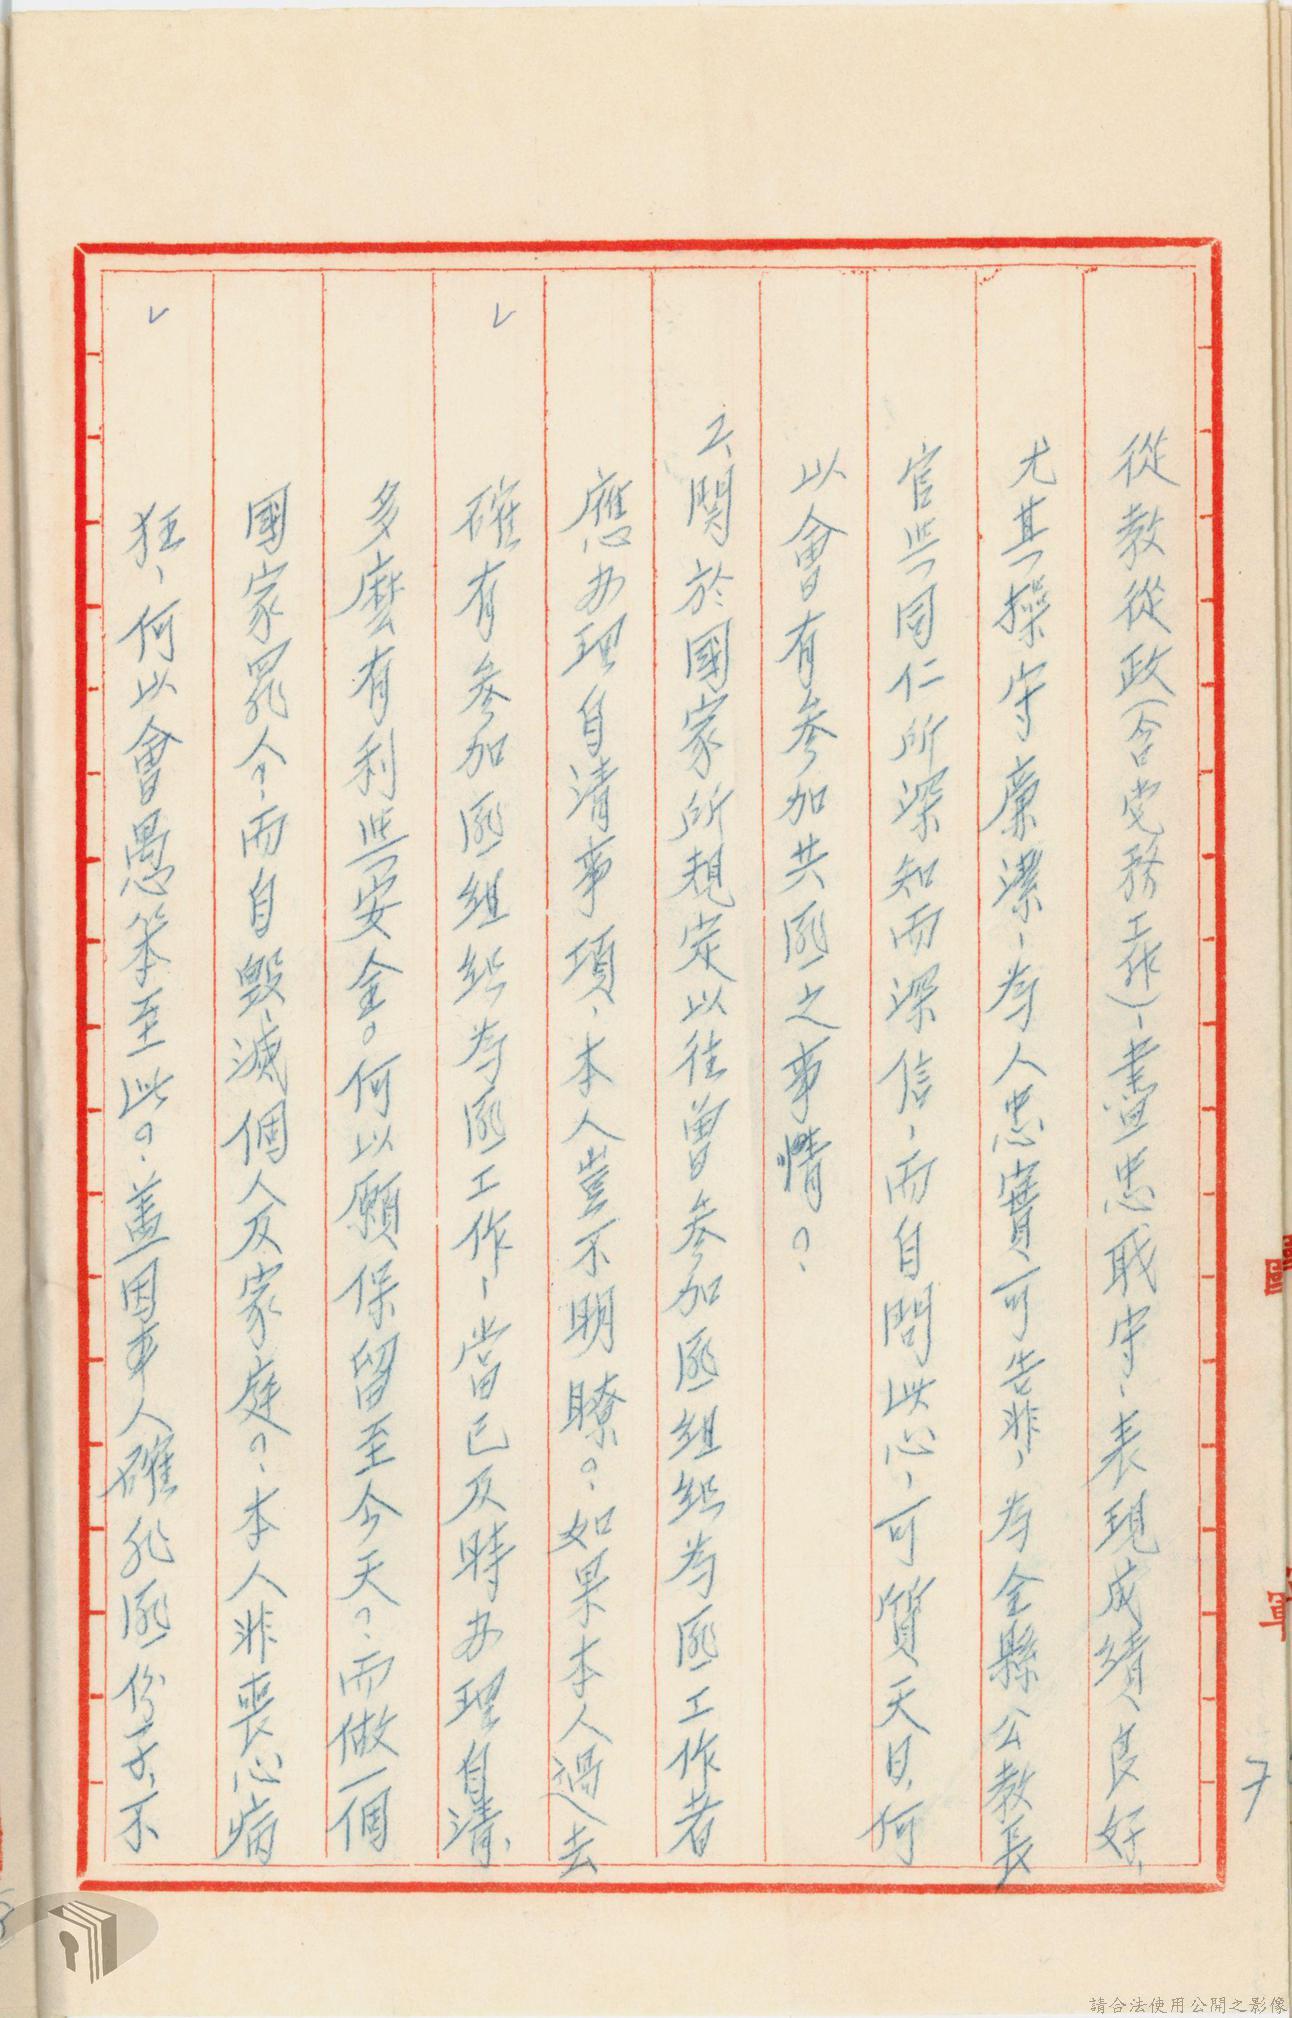 從教從政(含党務工作)、盡忠職守、表現成績良好、
尤其操守廉潔、為人忠實、可告非、為全縣公教長
官與同仁所深知而深信、而自問此心、可質天日、何
以會有參加共匪之事情？
2、関於國家所規定以往曾參加匪組織為匪工作者
應办理自清事項、本人豈不明瞭？如果本人過去
確有參加匪組織為匪工作、當已及時办理自清、
多麼有利與安全。何以願保留至今天？而做一個
國家罪人？而自毀、滅個人及家庭？、本人非喪心病
狂、何以會愚笨至此？、盖因本人確非匪份子、不
7
請合法使用公開之影像